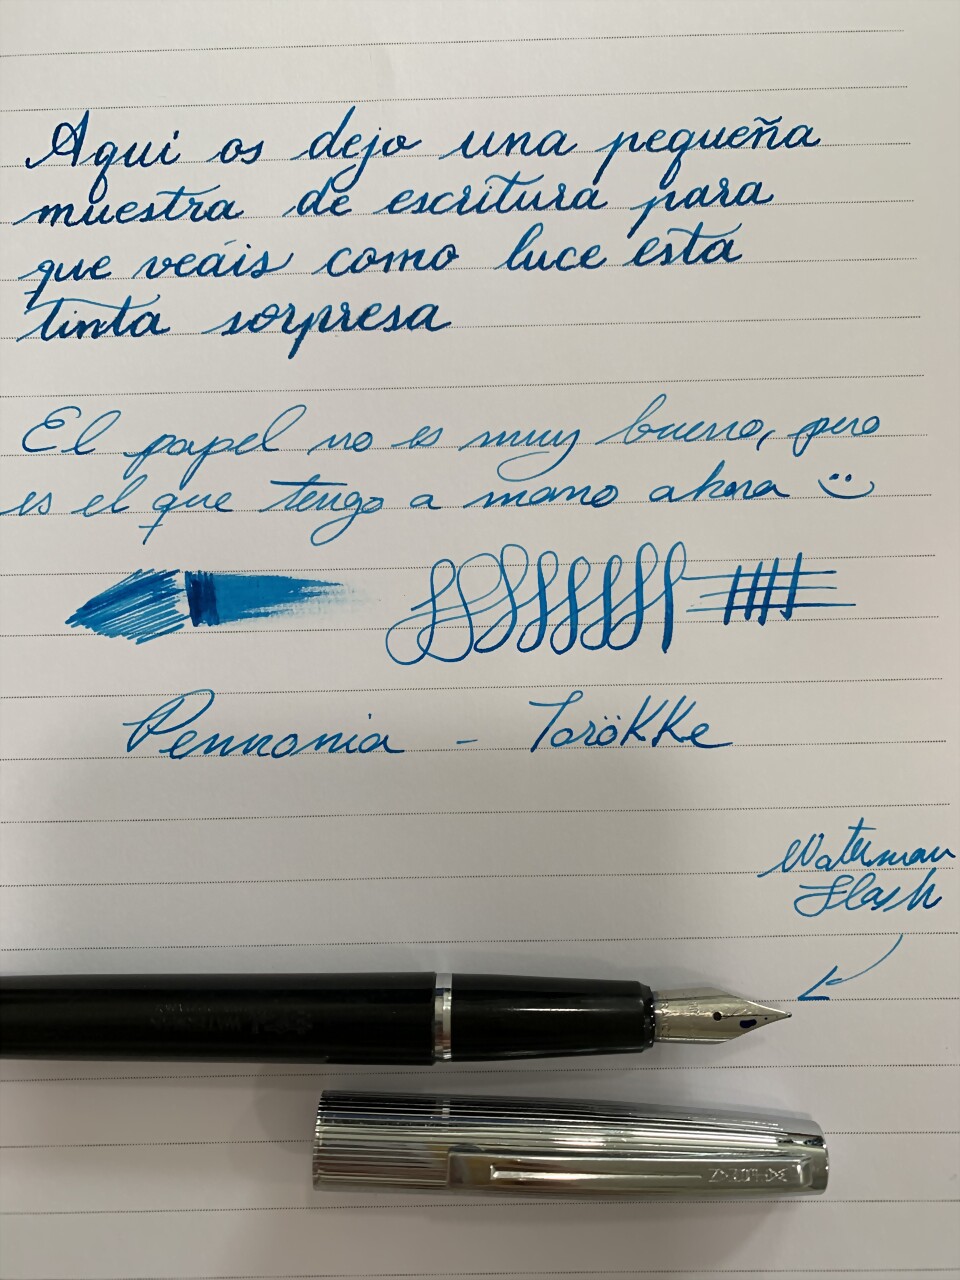 Aqui os dejo una pequeña
muestra de escritura para
que veáis como luce esta
tinta sorpresa
El papel no es muy bueno, pero
es el que tengo a mano ahora :)
Pennonia - Törökke
Waterman
Flash